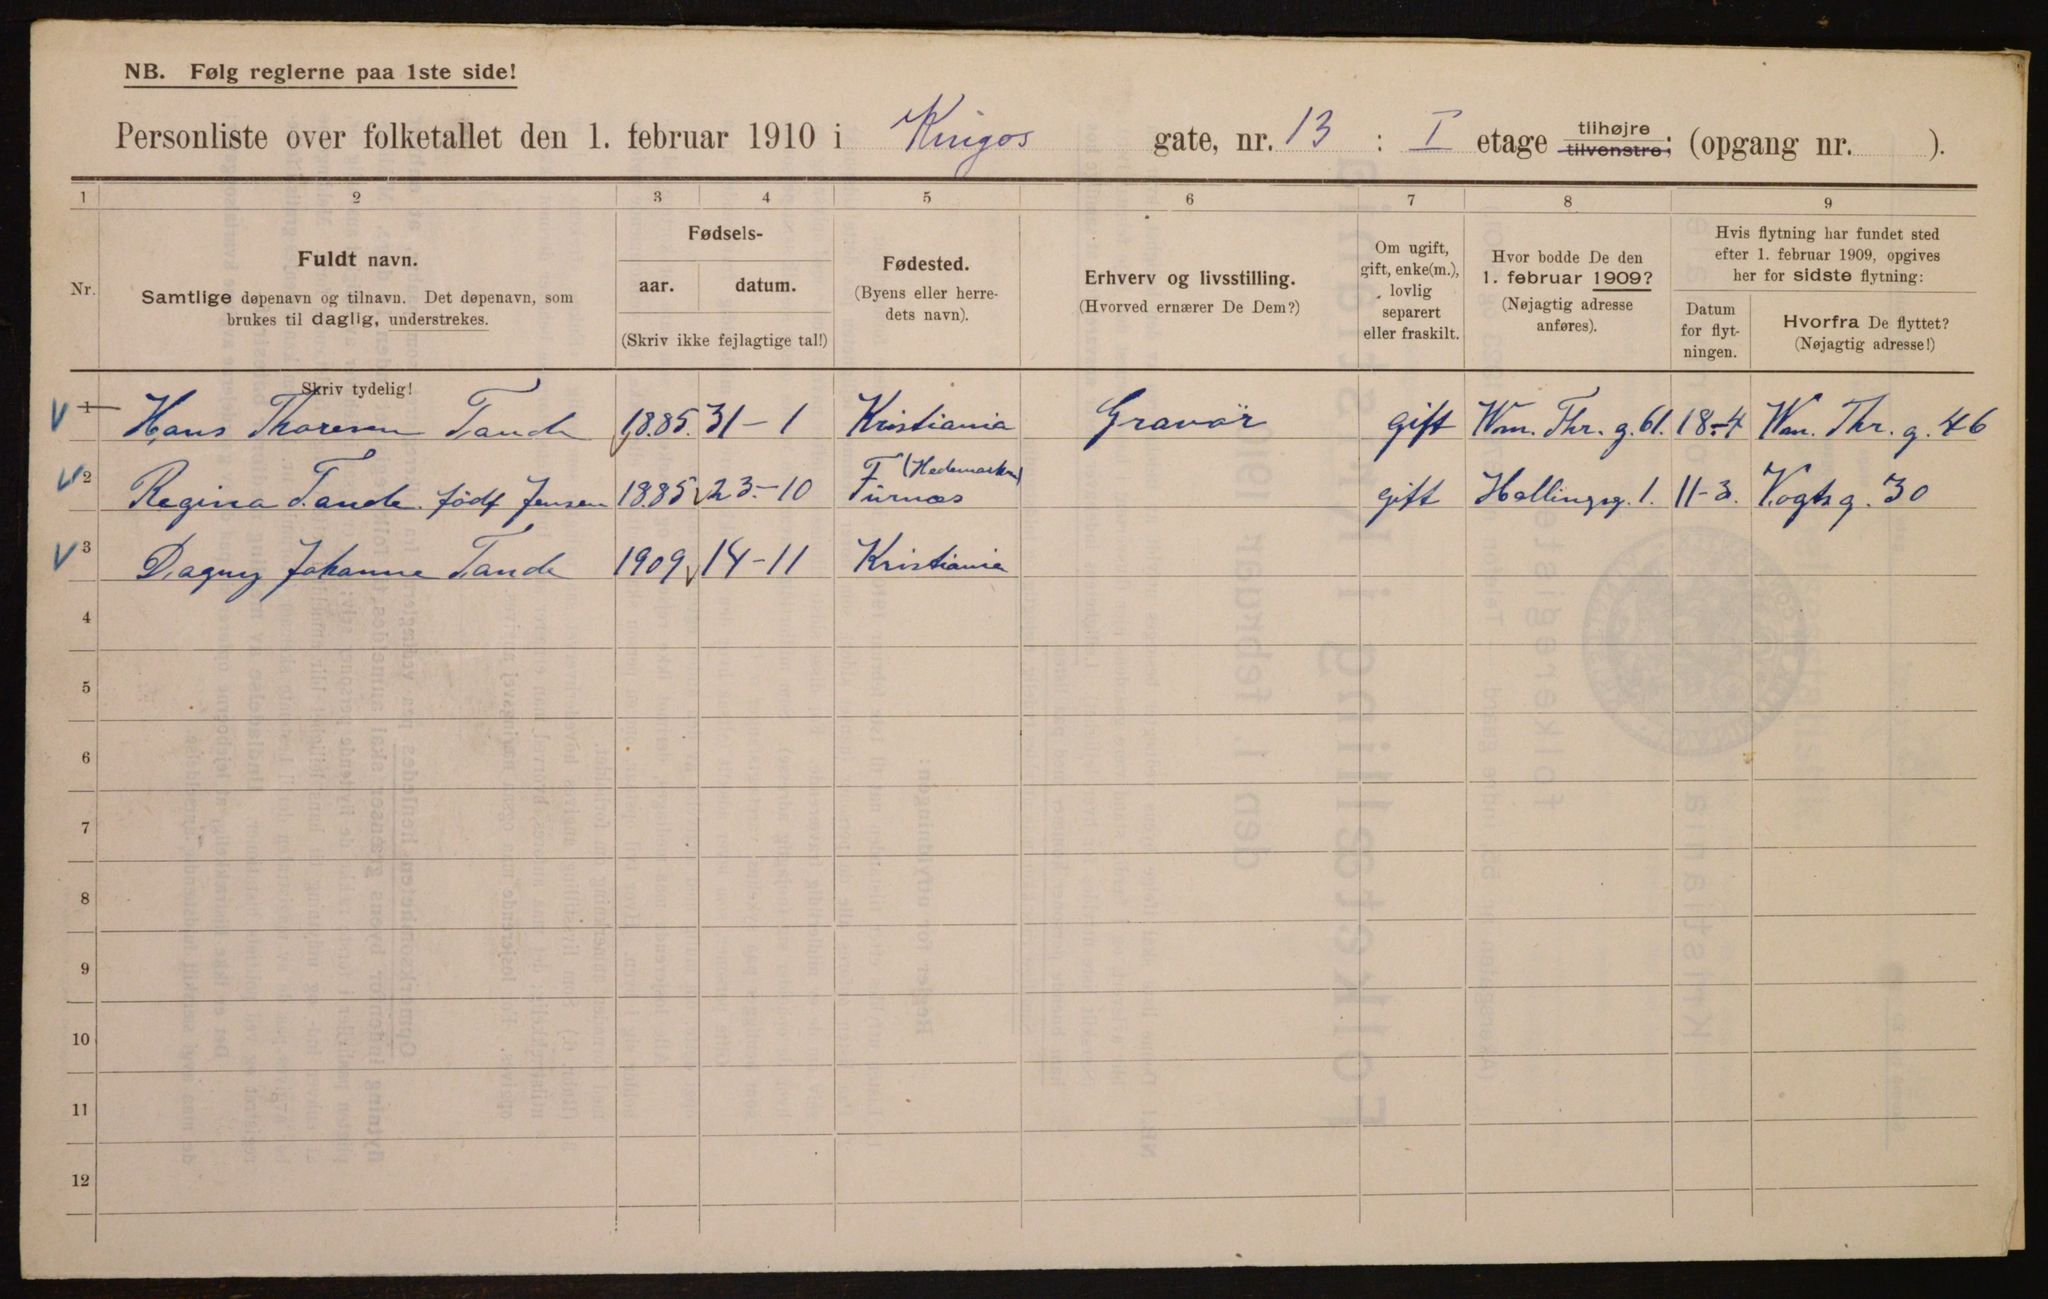 NB. Følg reglerne paa 1ste side!
Personliste over folketallet den 1. februar 1910 i Kingos gate, nr. 13 : I etage tilhøjre tilvenstre; (opgang nr. ).
1 2 3 4 5 6 7 8 9
Nr.
Fuldt navn.
Samtlige døpenavn og tilnavn. Det døpenavn, som
brukes til daglig, understrekes.
Skriv tydelig!
Fødsels-
aar. datum.
(Skriv ikke fejlagtige tal!)
Fødested.
(Byens eller herre-
dets navn).
Erhverv og livsstilling.
(Hvorved ernærer De Dem?)
Om ugift,
gift, enke(m.),
lovlig
separert
eller fraskilt.
Hvor bodde De den
1. februar 1909?
(Nøjagtig adresse
anføres).
Hvis flytning har fundet sted
efter 1. februar 1909, opgives
her for sidste flytning:
Datum
for flyt-
ningen.
Hvorfra De flyttet?
(Nøjagtig adresse!)
1 Hans Thoresen Tande 1885. 31-1 Kristiania Gravør gift Wm. Thr. g. 61. 18-4 Wm. Thr. g. 46
2 Regina Tande født Jensen 1885 23-10 Furnæs (Hedemarken) gift Hallingsg. 1. 11-3. Vogts g. 30
3 Dagny Johanne Tande 1909 14-11 Kristiania
4
5
6
7
8
9
10
11
12